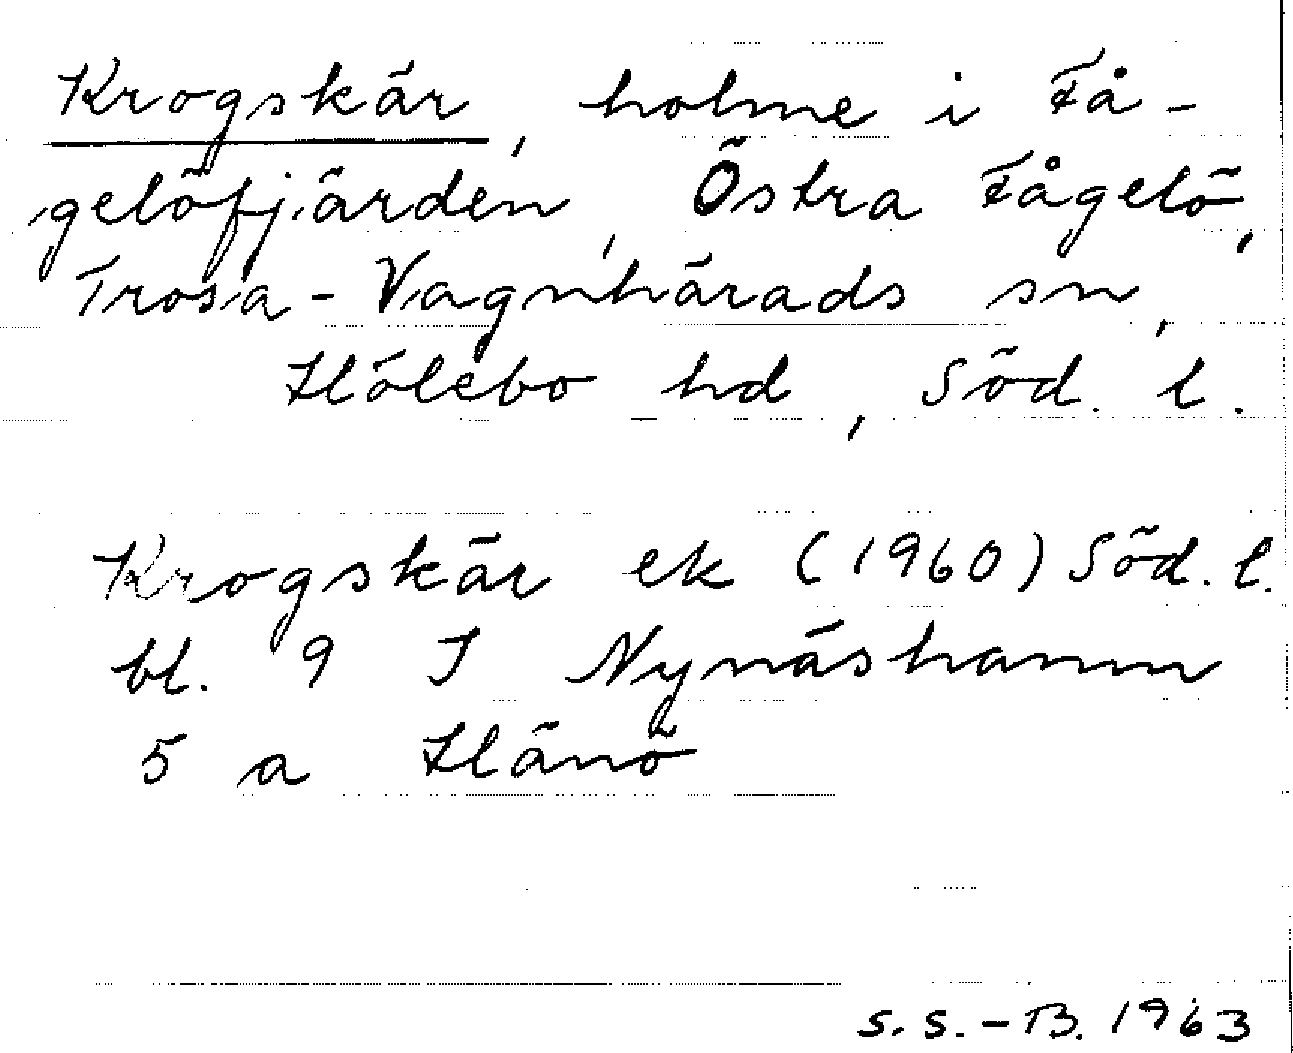 Krogskär, holme i Få-
gelöfjärden, Östra Fågelö,
Trosa-Vagnhärads sn,
Hölebo hd, Söd. l.
Krogskär ek (1960) Söd. l.
bl. 9 I Nynäshamn
5 a Hånö
S.S.-B. 1963